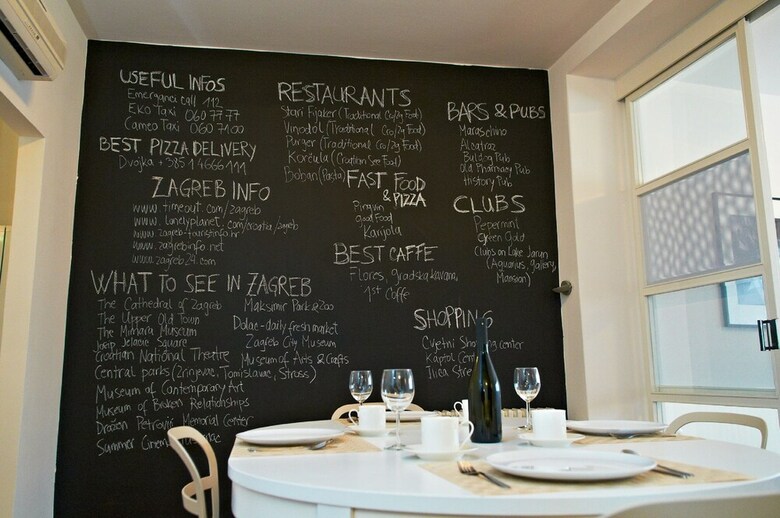 USEFUL INFOS
Emerganci call 112
Eko Taxi 060 77 77
Cameo Taxi 060 7100
BEST PIZZA DELIVERY
Dvojka +385 1 4666 111
ZAGREB INFO
www.timeout.com/zagreb
www.lonelyplanet.com/croatia/zagreb
www.zagreb-touristinfo.hr
www.zagrebinfo.net
www.zagreb24.com
WHAT TO SEE IN ZAGREB
The Cathedral of Zagreb
The Upper Old Town
The Mimara Museum
Jelacic Square
Croatian National Theatre
Central parks (Zrinjevac, Tomislavac, Stross)
Museum of Contemporary Art
Museum of Broken Relationships
Dražen Petrović Memorial Center
Summer Cinema
Maksimir Park & Zoo
Dolac - daily fresh market
Zagreb City Museum
Museum of Arts & Crafts
RESTAURANTS
Stari Fijaker (Traditional Food)
Vinodol (Traditional Food)
Purger (Traditional Food)
Korčula (Croatian See Food)
Boban (Pasta)
FAST FOOD
& PIZZA
Pingvin
good Food
Karijola
BEST CAFFE
Flores, gradska kavana,
1st Coffe
BARS & PUBS
Maraschino
Alcatraz
Buldog Pub
Old Pharmacy Pub
History Pub
CLUBS
Pepermint
Green Gold
Clubs on Lake Jarun
(Aquarius, gallery,
Mansion)
SHOPPING
Cvjetni Shopping center
Kaptol Cent
Ilica Stre